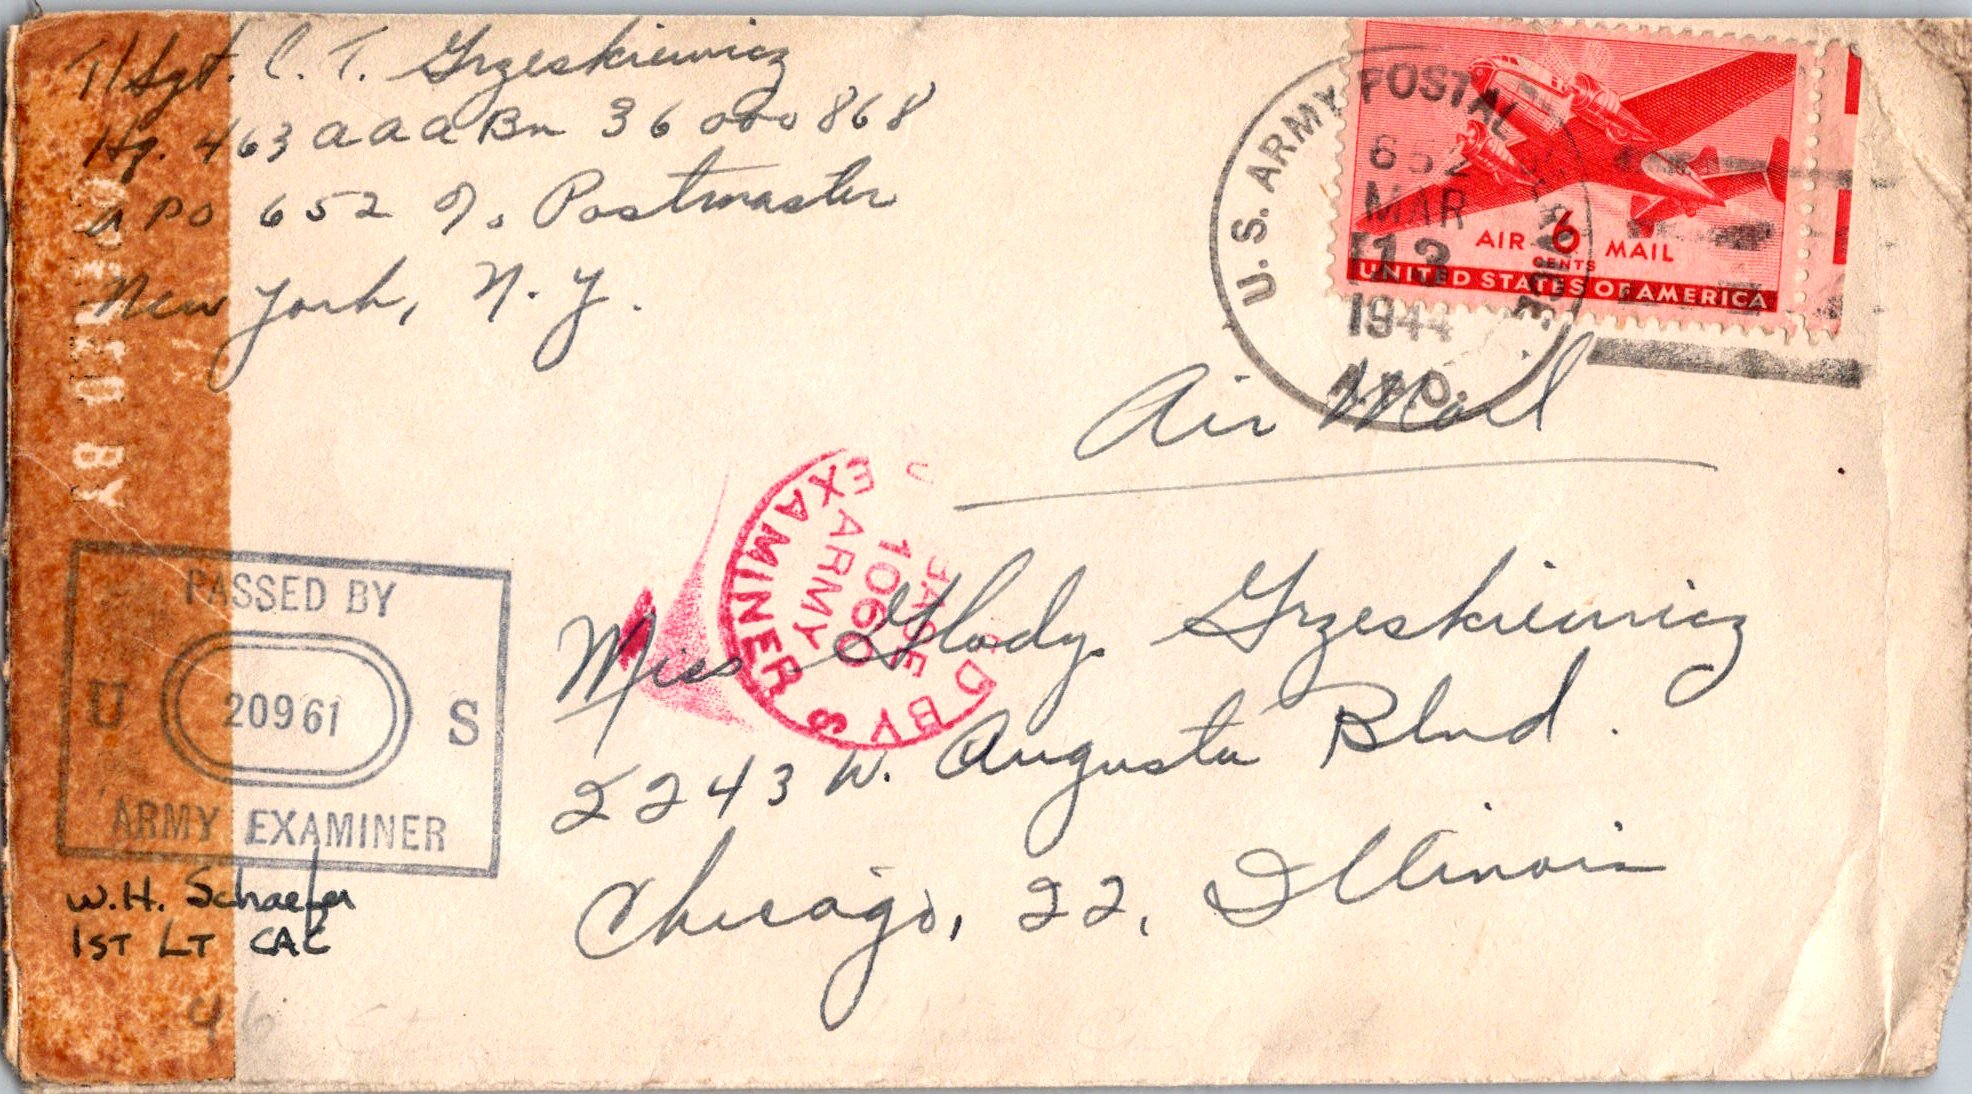 T/Sgt. C. T. Grzeskiewicz
Hq. 463 AAA Bn 36 000 868
APO 652 % Postmaster
New York, N.Y.
OPENED BY
U.S. ARMY POSTAL SERVICE
652
MAR
13
1944
A.P.O.
AIR 6 MAIL
CENTS
UNITED STATES OF AMERICA
Air Mail
EXAMINER
ARMY
1060
BASE
D BY
S
PASSED BY
U 20961 S
ARMY EXAMINER
W.H. Schaefer
1ST LT CAC
46
Miss Gladys Grzeskiewicz
2243 W. Augusta Blvd.
Chicago, 22, Illinois